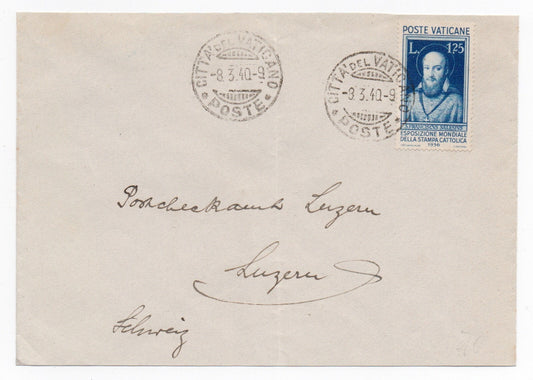 CITTA' DEL VATICANO
-8.3.40-9
POSTE
CITTA' DEL VATICANO
-8.3.40-9
POSTE
POSTE VATICANE
L. 1,25
S. FRANCISCUS SALESIUS
ESPOSIZIONE MONDIALE
DELLA STAMPA CATTOLICA
1936
Postcheckamt Luzern
Luzern
Schweiz